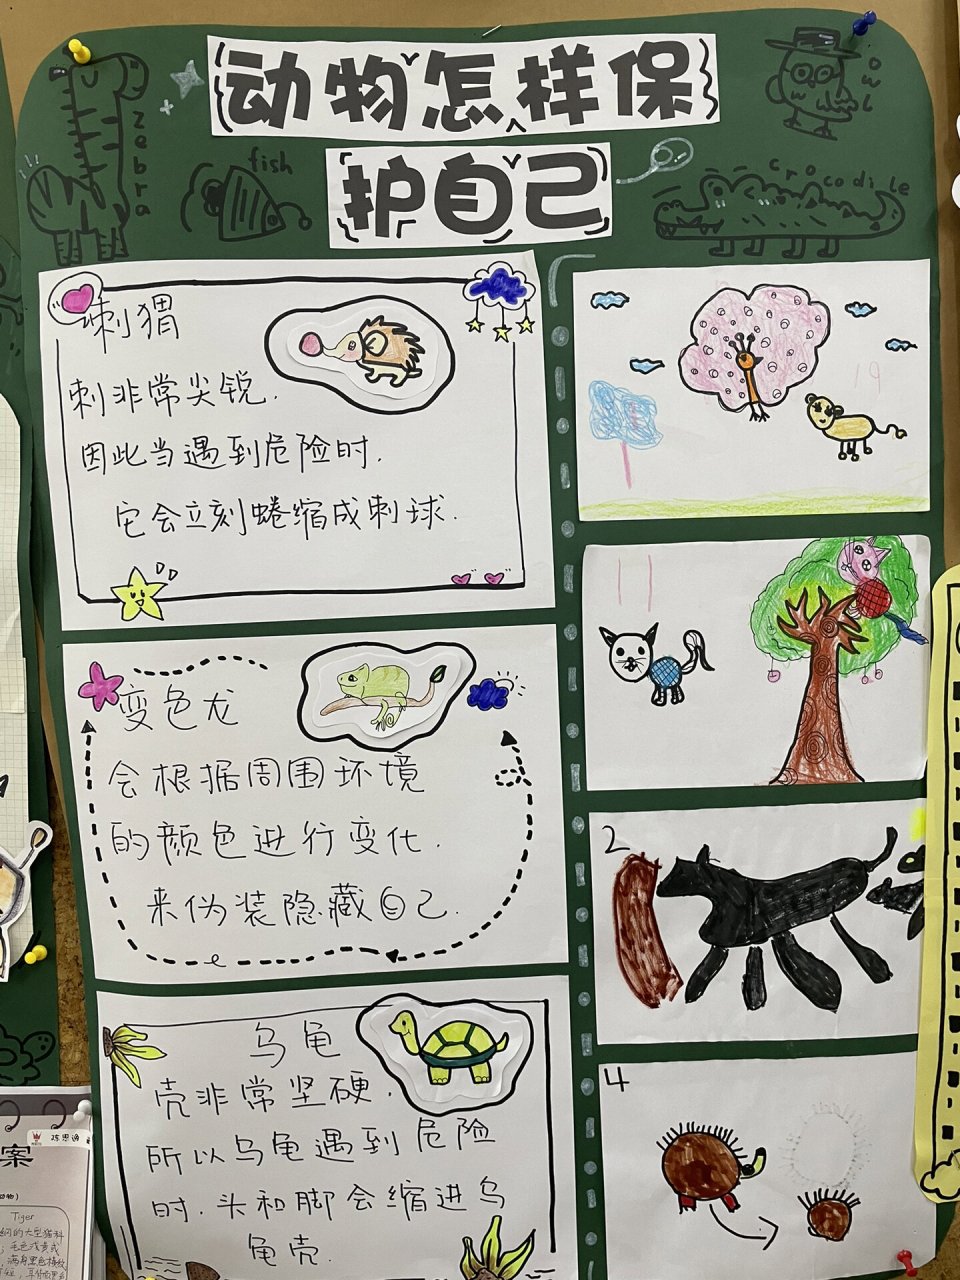 动物怎样保
护自己
zebra
fish
owl
crocodile
刺猬
刺非常尖锐.
因此当遇到危险时.
它会立刻蜷缩成刺球.
变色龙
会根据周围环境
的颜色进行变化.
来伪装隐藏自己.
乌龟
壳非常坚硬.
所以乌龟遇到危险
时.头和脚会缩进乌
龟壳.
19
11
2
4
案
Tiger